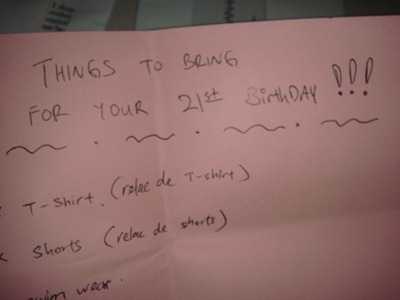 THINGS TO BRING
FOR YOUR 21st BirthDAY !!!
T-Shirt. (relac de T-shirt)
shorts (relac de shorts)
swim wear.